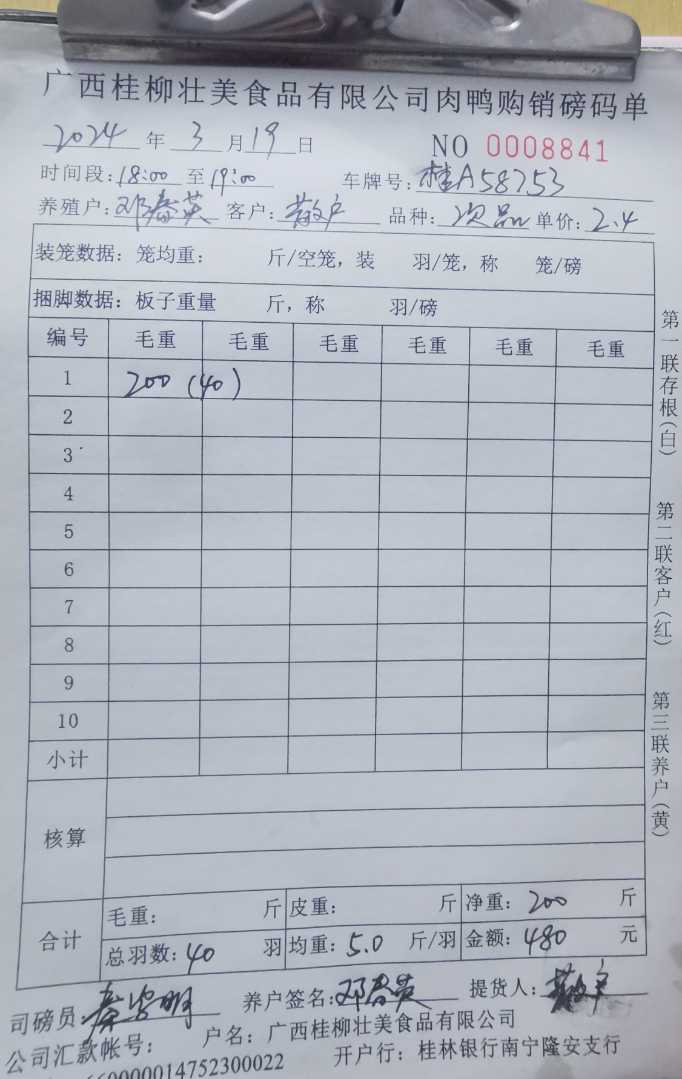 广西桂柳壮美食品有限公司肉鸭购销磅码单
2024 年 3 月 19 日 NO 0008841
时间段: 18:00 至 19:00 车牌号: 桂A58753
养殖户: 邓春英 客户: 散户 品种: 次品 单价: 2.4
装笼数据: 笼均重: 斤/空笼, 装 羽/笼, 称 笼/磅
捆脚数据: 板子重量 斤, 称 羽/磅
编号 毛重 毛重 毛重 毛重 毛重 毛重
1 200 (40)
2
3
4
5
6
7
8
9
10
小计
核算
合计
毛重: 斤 皮重: 斤 净重: 200 斤
总羽数: 40 羽 均重: 5.0 斤/羽 金额: 480 元
司磅员: 养户签名: 邓春英 提货人: 散户
公司汇款帐号: 户名: 广西桂柳壮美食品有限公司
660000014752300022 开户行: 桂林银行南宁隆安支行
第一联存根(白)
第二联客户(红)
第三联养户(黄)